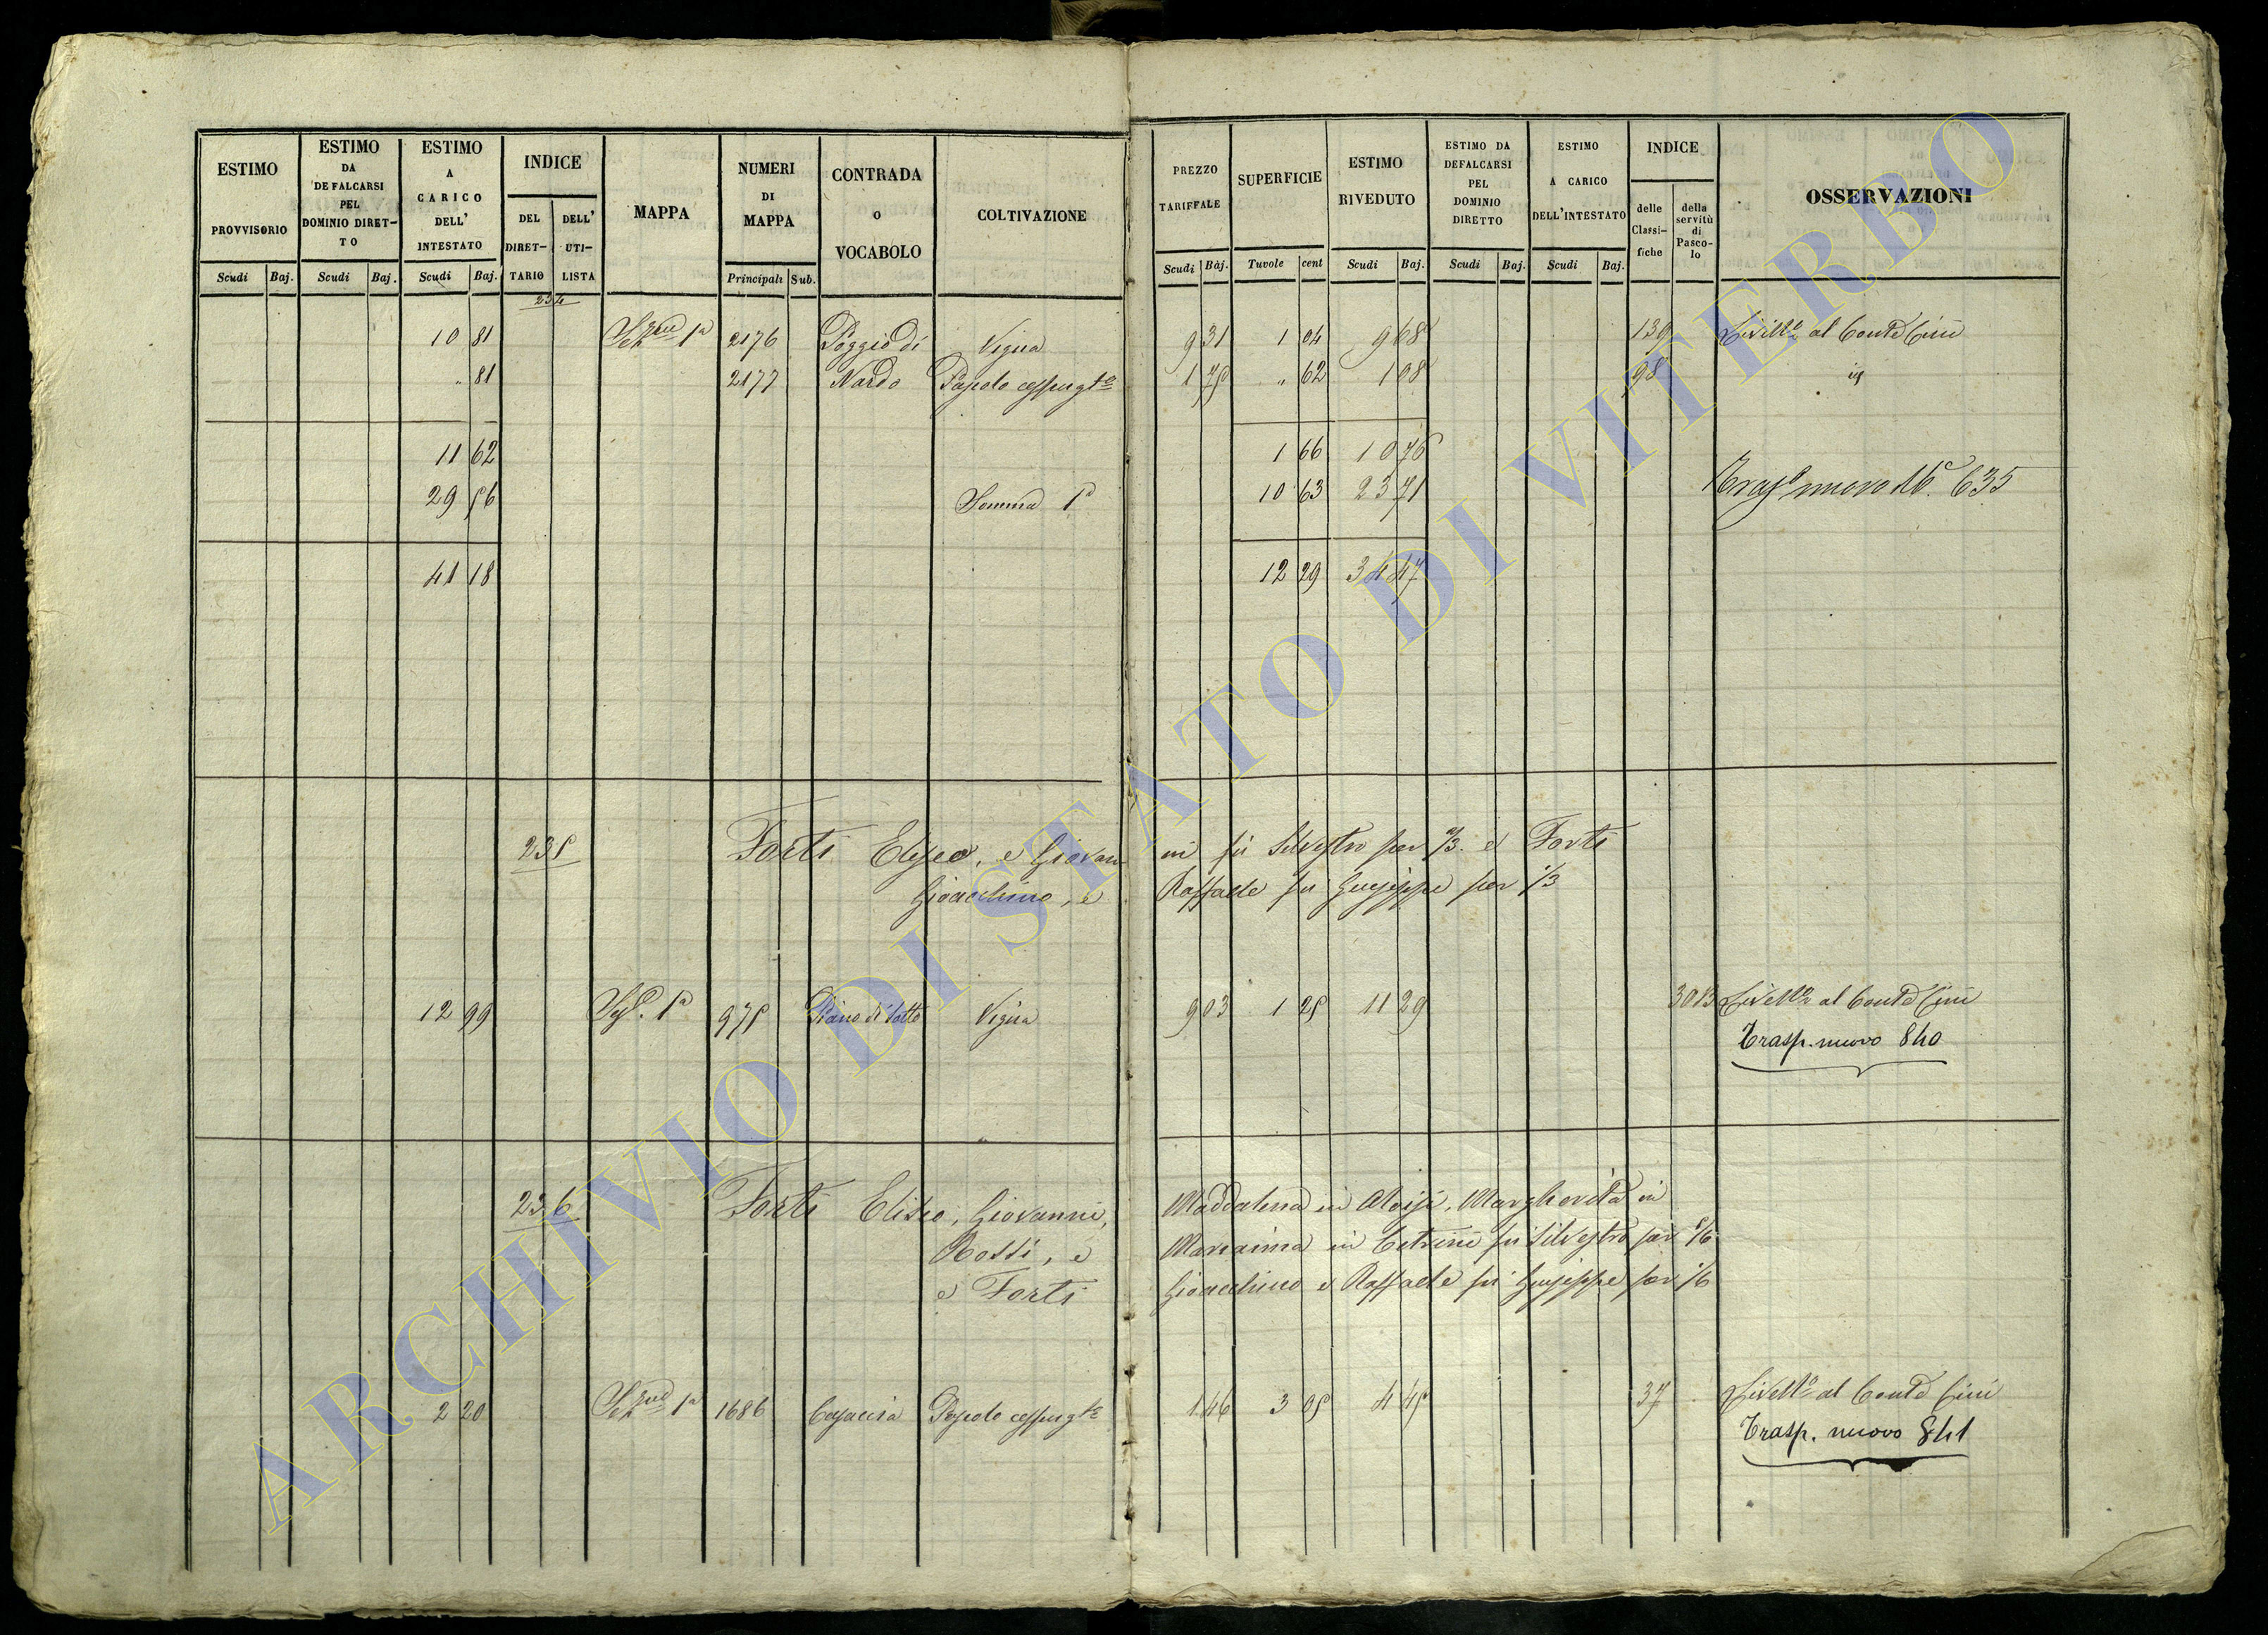 ESTIMO PROVVISORIO
ESTIMO DA DEFALCARSI PEL DOMINIO DIRET-TO
ESTIMO A CARICO DELL' INTESTATO
INDICE
DEL DIRET-TARIO
DELL' UTI-LISTA
MAPPA
NUMERI DI MAPPA
CONTRADA O VOCABOLO
COLTIVAZIONE
PREZZO TARIFFALE
SUPERFICIE
ESTIMO RIVEDUTO
ESTIMO DA DEFALCARSI PEL DOMINIO DIRETTO
ESTIMO A CARICO DELL'INTESTATO
INDICE
delle Classi-fiche
della servitù di Pasco-lo
OSSERVAZIONI
Scudi Baj. Scudi Baj. Scudi Baj. Principali Sub. Scudi Baj. Tavole cent Scudi Baj. Scudi Baj. Scudi Baj.
234
10 81 1a 2176 Poggio di Vigna 9 31 1 04 9 68 139 Livello al Conte Cini
" 81 2177 Nardo Pascolo cespugto 1 75 " 62 1 08 98
11 62 1 66 10 76
29 56 Somma Pa 10 63 23 71 Traspo nuovo 635
41 18 12 29 34 47
235 Forti Eliseo, e Giovanni fu Silvestro per 2/3. e Forti
Gioacchino, e Raffaele fu Giuseppe per 1/3
12 99 1a 975 Piano di sotto Vigna 9 03 1 25 11 29 3013 Livello al Conte Cini
Trasp. nuovo 840
236 Forti Eliseo, Giovanni, Maddalena in Aloisi, Margherita in
Rossi, e Marianna in Cetrini fu Silvestro per 5/6
e Forti Gioacchino e Raffaele fu Giuseppe per 1/6
2 20 1a 1686 Casaccia Pascolo cespugto 1 46 3 05 4 45 37 Livello al Conte Cini
Trasp. nuovo 841
ARCHIVIO DI STATO DI VITERBO